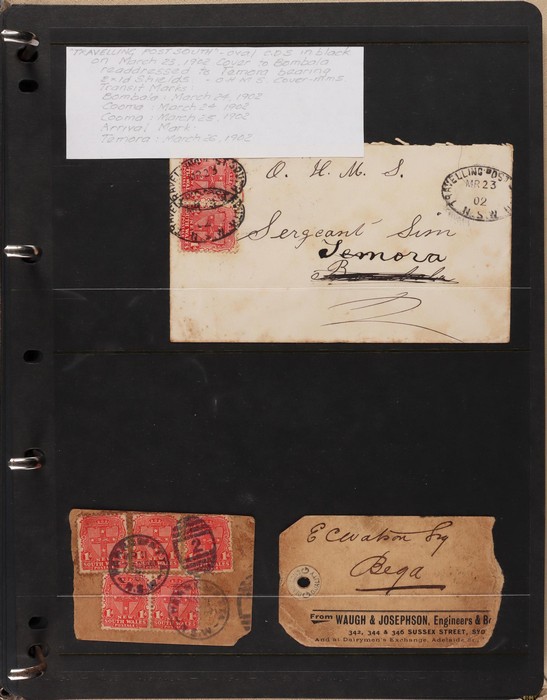 "TRAVELLING POST SOUTH" - oval C.D.S in black
on March 23, 1902 Cover to Bombala
readdressed to Temora bearing
2 x 1d Shields - O.H.M.S. Cover
Transit Marks:
Bombala: March 24, 1902
Cooma: March 24 1902
Cooma: March 25, 1902
Arrival Mark:
Temora: March 26, 1902
O. H. M. S.
TRAVELLING POST
MR 23
02
N.S.W
Sergeant Sim
Temora
NEW
SOUTH WALES
POSTAGE
E C Watson Esq
Bega
From WAUGH & JOSEPHSON, Engineers &
342, 344 & 346 SUSSEX STREET, SYD
And at Dairymen's Exchange, Adelaide